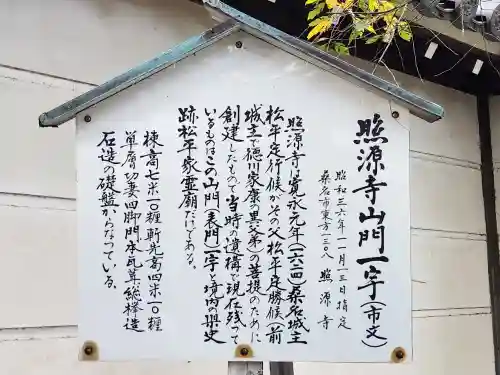 照源寺山門一宇(市文)
昭和三六年一一月一五日指定
桑名市東方一三〇八　照源寺
照源寺は寛永元年(一六二四)桑名城主
松平定行候がその父松平定勝候(前
城主で徳川家康の異父弟)の菩提のために
創建したもので当時の遺構で現在残って
いるものはこの山門(表門)一宇と境内の県史
跡松平家霊廟だけである。
棟高七米一〇糎軒先高四米一〇糎
単層切妻四脚門本瓦葺総欅造
石造の礎盤からなっている。